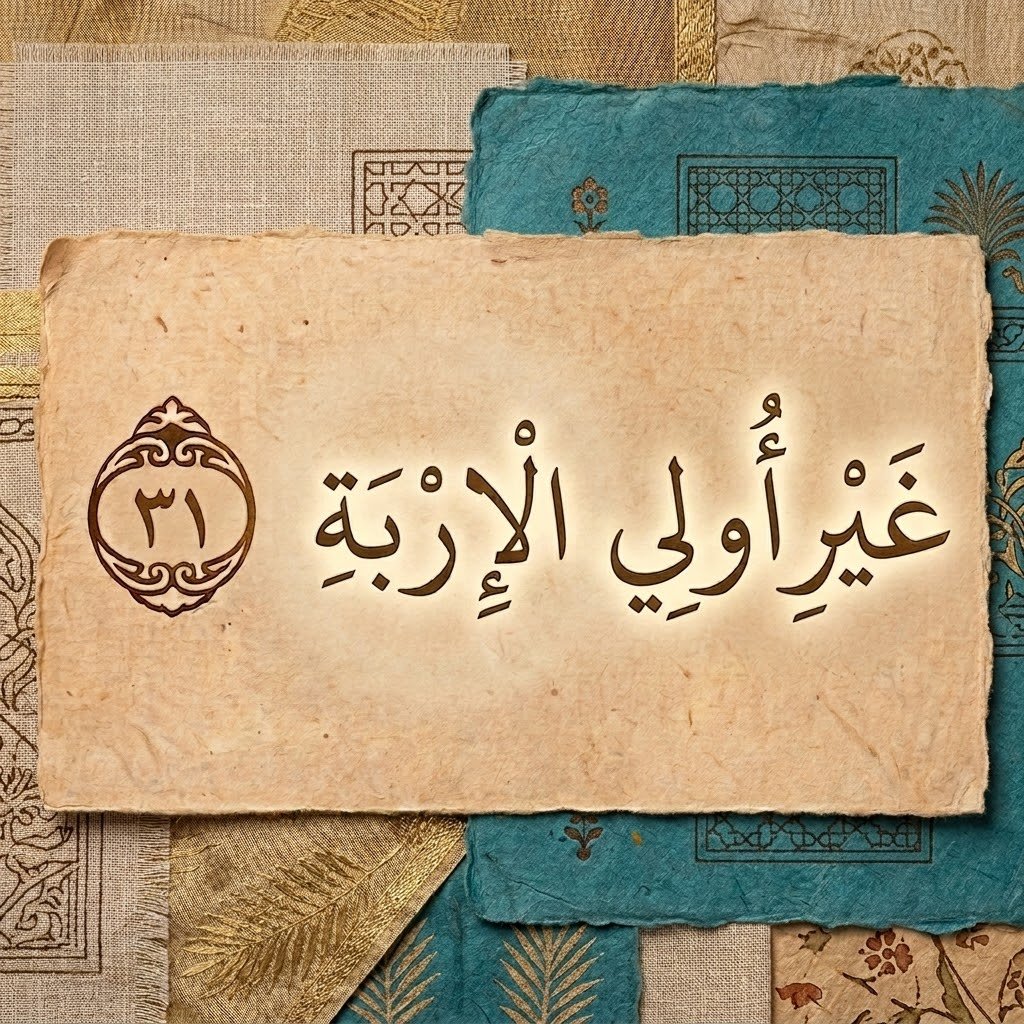 غَيْرِ أُولِي الْإِرْبَةِ ٣١